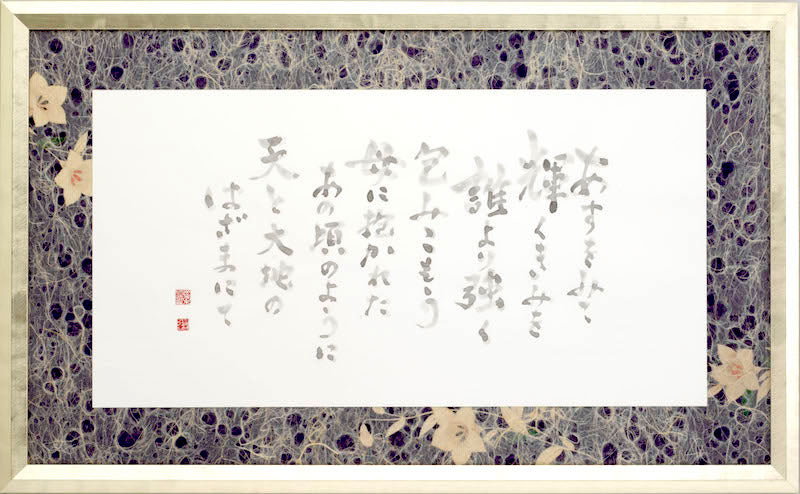 あすをみて
輝くきみを
誰より強く
包みこもう
母に抱かれた
あの頃のように
天と大地の
はざまにて